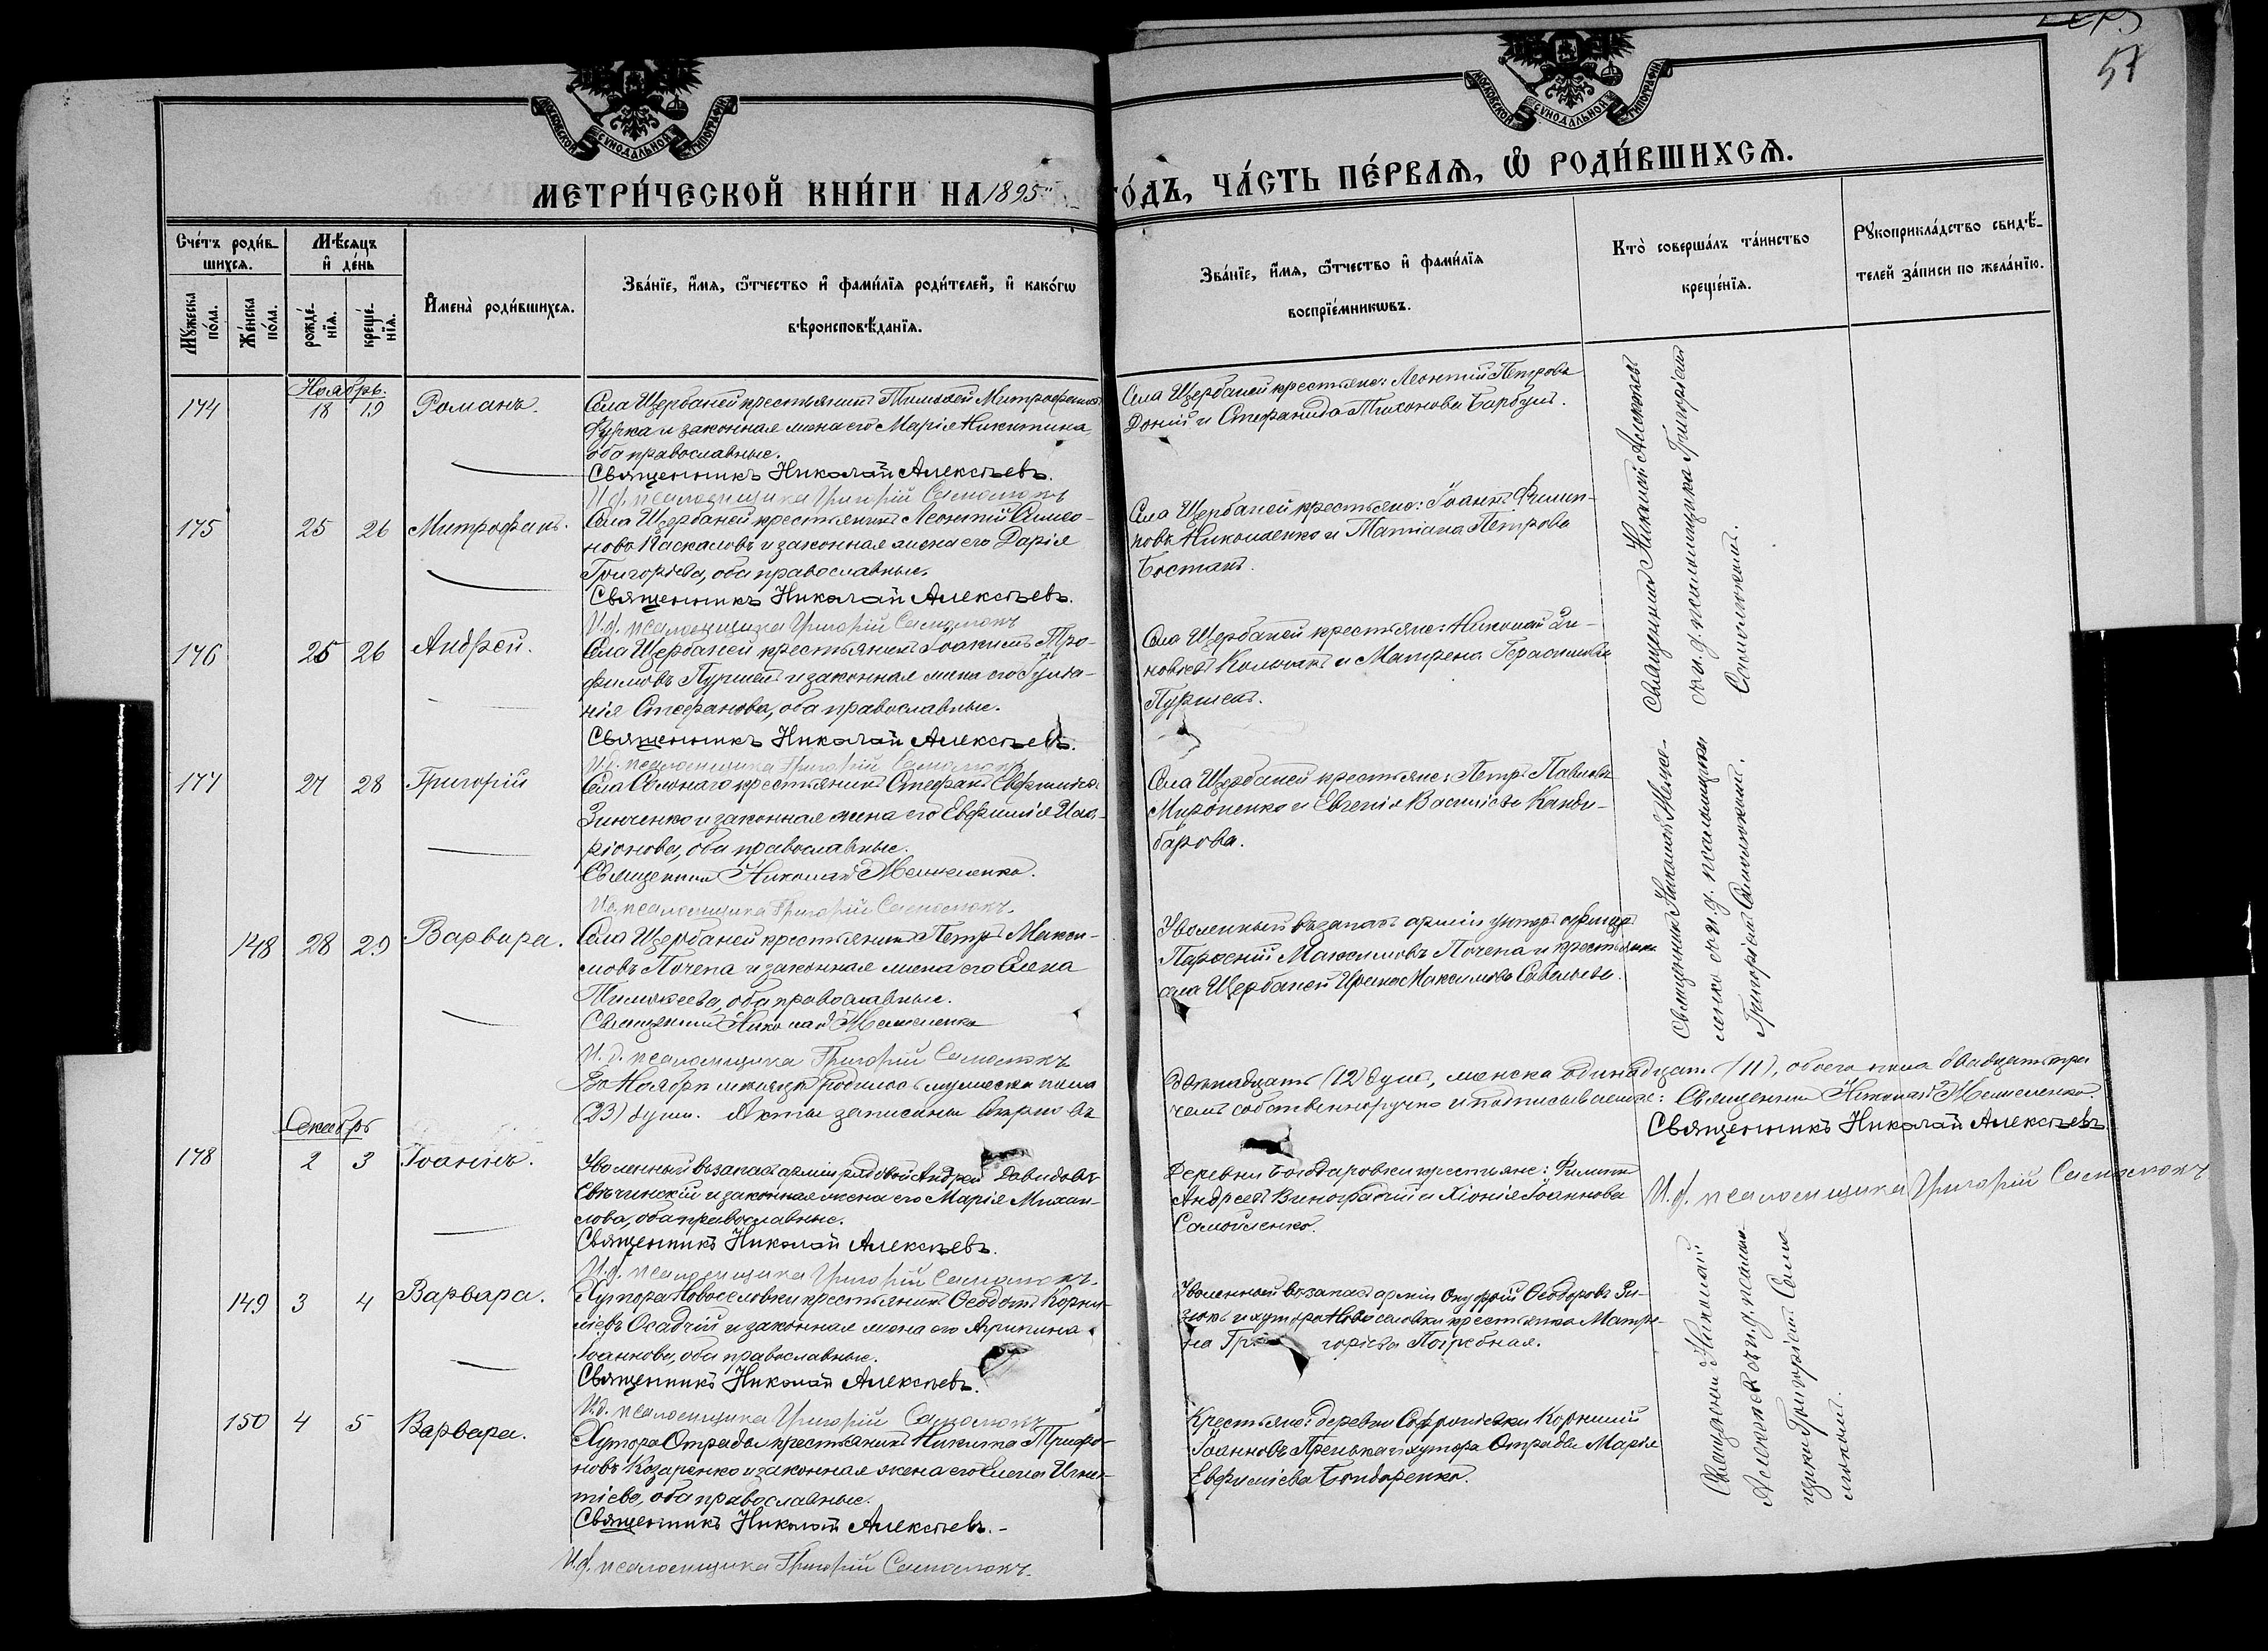 57
МОСКОВСКОЙ СѴНОДАЛЬНОЙ ТИПОГРАФІИ
МОСКОВСКОЙ СѴНОДАЛЬНОЙ ТИПОГРАФІИ
МЕТРИ́ЧЕСКОЙ КНИ́ГИ НА 1895
ГО́ДЪ, ЧА́СТЬ ПЕ́РВАѦ, Ѽ РОДИ́ВШИХСѦ.
Сче́тъ роди́в-
шихсѧ.
Мѣ́сѧцъ
и҆ де́нь
Мꙋ́жеска по́ла.
Же́нска по́ла.
рожде́-
нїѧ.
креще́-
нїѧ.
И҆мена̀ роди́вшихсѧ.
Зва́нїе, и҆́мѧ, ѻ҆́тчество и҆ фами́лїѧ роди́телей, и҆ како́гѡ
вѣроисповѣ́данїѧ.
Зва́нїе, и҆́мѧ, ѻ҆́тчество и҆ фами́лїѧ
воспрїе́мникѡвъ.
Кто̀ соверша́лъ та́инство
креще́нїѧ.
Рꙋкоприкла́дство свидѣ́-
телей за́писи по жела́нїю.
Ноябрь.
174 18 19 Романъ.
Села Щербаней крестьянинъ Тимофей Митрофановъ
Фурка и законная жена его Марія Никитина,
оба православные.
Священникъ Николай Алексѣевъ.
И.д. псаломщика Григорій Самолюкъ
Села Щербаней крестьяне: Леонтій Петровъ
Доній и Стефанида Тихонова Барбулъ.
Священникъ Николай Алексѣевъ
съ и.д. псаломщика Григоріемъ
Самолюкомъ.
175 25 26 Митрофанъ.
Села Щербаней крестьянинъ Леонтій Симео-
новъ Паскаловъ и законная жена его Дарія
Григорьева, оба православные.
Священникъ Николай Алексѣевъ.
И.д. псаломщика Григорій Самолюкъ
Села Щербаней крестьяне: Іоаннъ Филип-
повъ Николаенко и Татіана Петрова
Бостанъ.
176 25 26 Андрей.
Села Щербаней крестьянинъ Іоакимъ Тро-
фимовъ Пуршелъ и законная жена его Іулиа-
нія Стефанова, оба православные.
Священникъ Николай Алексѣевъ.
И.д. псаломщика Григорій Самолюкъ
Села Щербаней крестьяне: Николай Зи-
новіевъ и Матрена Герасимова
Пуршелъ.
177 27 28 Григорій
крестьянинъ Стефанъ
Зинченко и законная жена его Евфимія Ила-
ріонова, оба православные.
Священникъ Николай Мелиоленко.
И.д. псаломщика Григорій Самолюкъ.
Села Щербаней крестьяне: Петръ Павловъ
Мироненко и Евгенія Васильева Канды-
барова.
Священникъ Николай
съ и.д. псаломщика
Григоріемъ Самолюкомъ.
148 28 29 Варвара.
Села Щербаней крестьянинъ Петръ Макси-
мовъ Почепа и законная жена его Елена
Тимофеева, оба православные.
Священникъ Николай
И.д. псаломщика Григорій Самолюкъ
Уволенный въ запасъ арміи унтеръ офицеръ
Максимовъ Почепа и крестьянка
села Щербаней Ирина Максимова Савельева.
Въ Ноябрѣ мѣсяцѣ родилось мужеска пола
двѣнадцать (12) душъ, женска одинадцать (11), обоего пола двадцать три
(23) души. Акты записаны вѣрно въ
чемъ собственноручно и подписываемся: Священникъ Николай
Священникъ Николай Алексѣевъ
И.д. псаломщика Григорій Самолюкъ
Декабрь
178 2 3 Іоаннъ.
Уволенный въ запасъ арміи рядовой Андрей Давидовъ
Свѣчинскій и законная жена его Марія Михаи-
лова, оба православные.
Священникъ Николай Алексѣевъ.
И.д. псаломщика Григорій Самолюкъ.
Деревни Бондаровки крестьяне: Филиппъ
Андреевъ Виноградній и Хіонія Іоаннова
Самойленко.
149 3 4 Варвара.
Хутора Новоселовки крестьянинъ Ѳеодотъ Корни-
ліевъ Осадчій и законная жена его Агрипина
Іоаннова, оба православные.
Священникъ Николай Алексѣевъ.
И.д. псаломщика Григорій Самолюкъ
Уволенный въ запасъ арміи Онуфрій Ѳеодоровъ Зи-
зюкъ и хутора Новоселовки крестьянка Матре-
на Григорьева Погребная.
Священникъ Николай
Алексѣевъ съ и.д. псалом-
щика Григоріемъ Само-
люкомъ.
150 4 5 Варвара.
Хутора Отрады крестьянинъ Никита Трифо-
новъ Козаренко и законная жена его Елена Игна-
тіева, оба православные.
Священникъ Николай Алексѣевъ.
И.д. псаломщика Григорій Самолюкъ.
Крестьяне: деревни Софроніевки Корнилій
Іоанновъ Пренька и хутора Отрады Марія
Евфиміева Бондаренко.